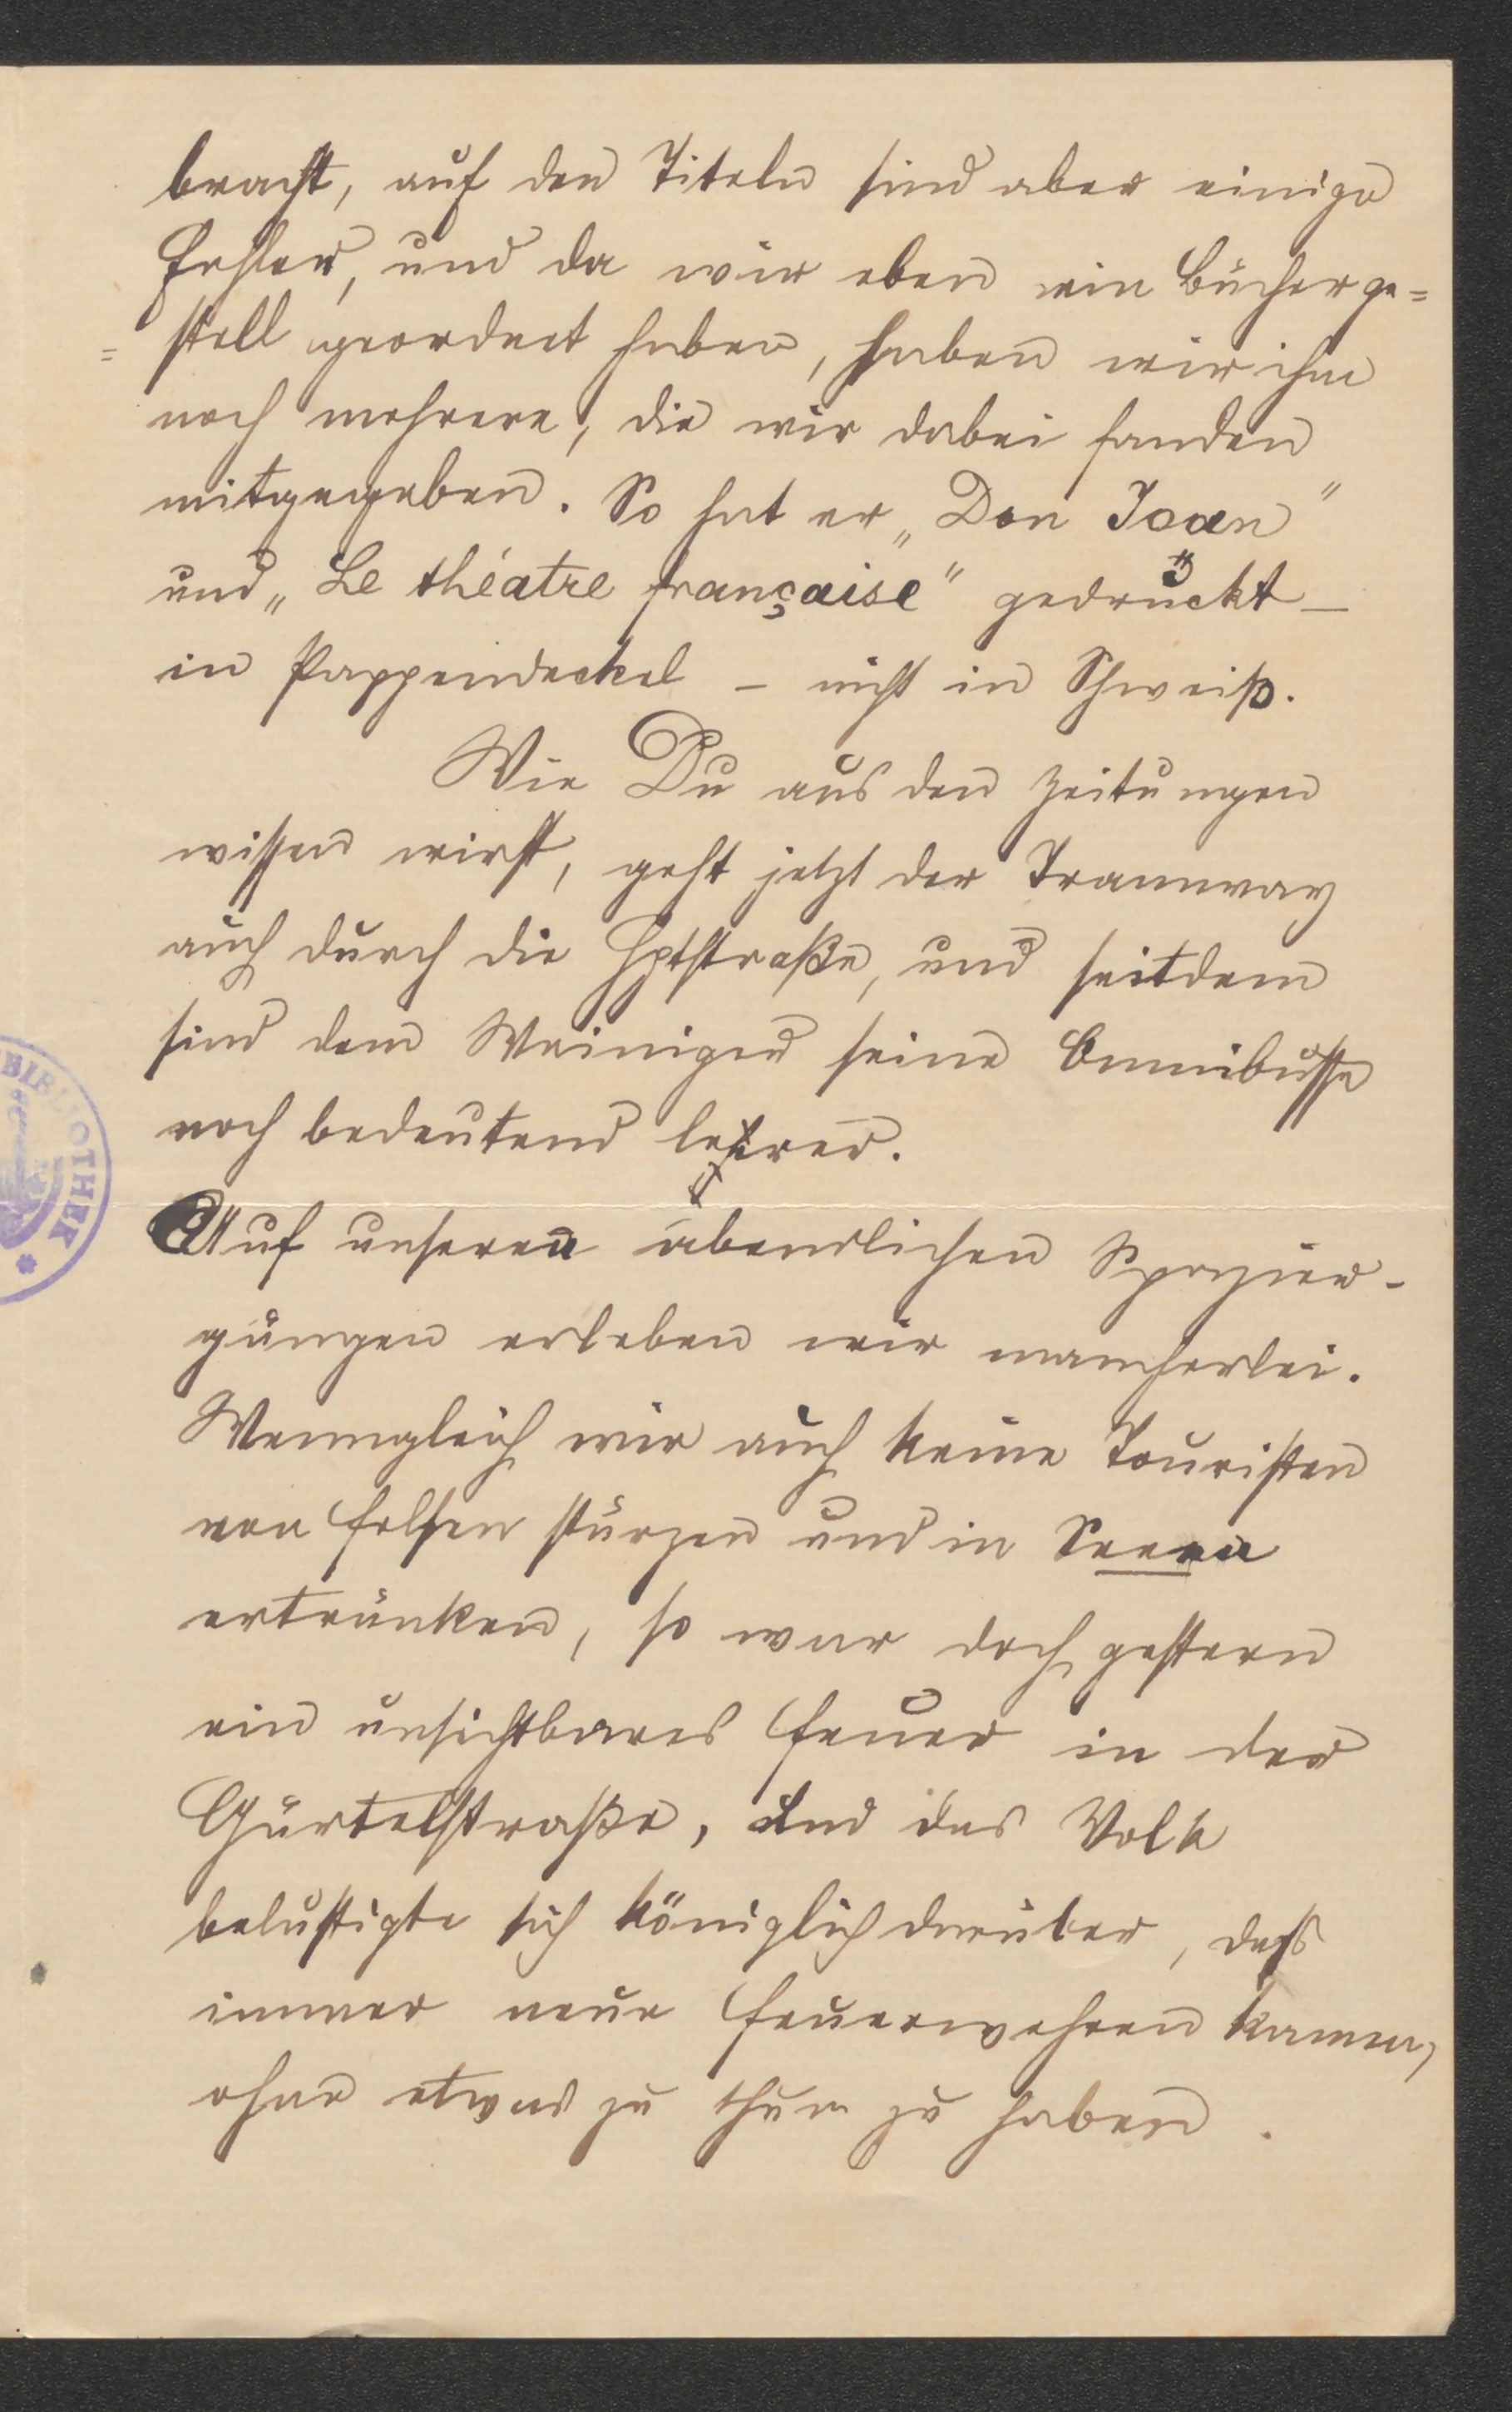 bracht, auf den Titeln sind aber einige
Fehler, und da wir eben ein Bücherge=
=stell geordnet haben, haben wir ihm
noch mehrere, die wir dabei fanden
mitgegeben. So hat er „Don Joan"
und „Le théatre française" gedruckt –
in Pappendeckel – nicht in Schweiß.
Wie Du aus den Zeitungen
wissen wirst, geht jetzt der Tramway
auch durch die Hptstraße, und seitdem
sind dem Weiniger seine Omnibusse
noch bedeutend leerer.
Auf unseren abendlichen Spazier-
gängen erleben wir mancherlei.
Wenngleich wir auch keine Touristen
von Felsen stürzen und in Seeen
ertränken, so war doch gestern
ein unsichtbares Feuer in der
Gürtelstraße, und das Volk
belustigte sich königlich darüber, daß
immer neue Feuerwehren kamen,
ohne etwas zu thun zu haben.
BIBLIOTHEK